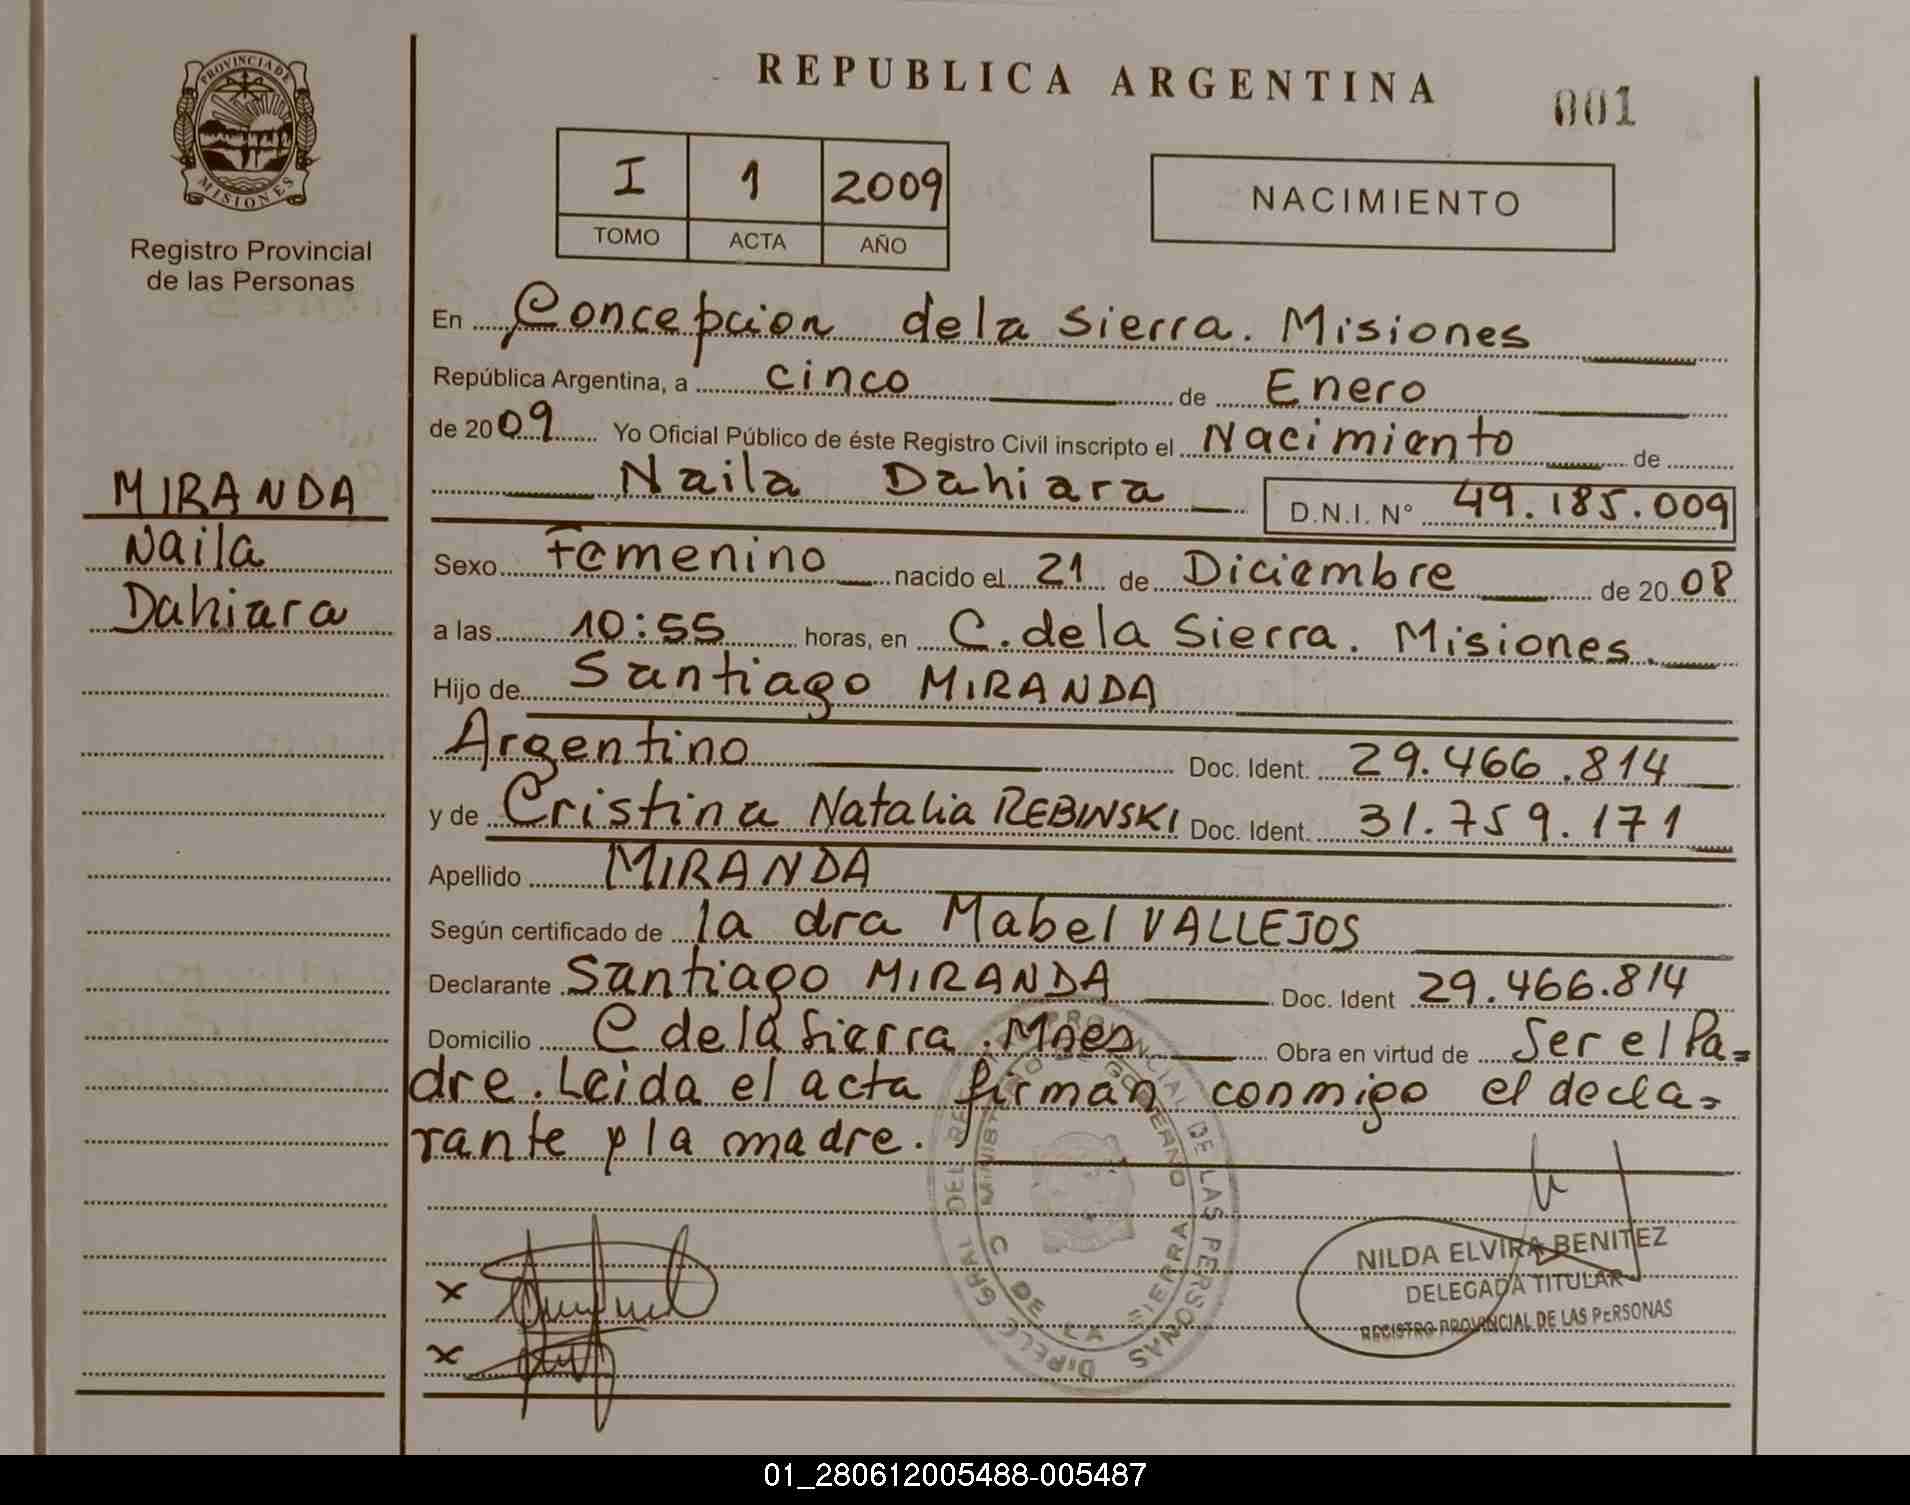 PROVINCIA DE
MISIONES
Registro Provincial
de las Personas
MIRANDA
Naila
Dahiara
REPUBLICA ARGENTINA
001
I 1 2009
TOMO ACTA AÑO
NACIMIENTO
En Concepcion de la Sierra. Misiones
República Argentina, a cinco de Enero
de 2009 Yo Oficial Público de éste Registro Civil inscripto el Nacimiento de
Naila Dahiara D.N.I. N° 49.185.009
Sexo Femenino nacido el 21 de Diciembre de 2008
a las 10:55 horas, en C. de la Sierra. Misiones.
Hijo de Santiago MIRANDA
Argentino Doc. Ident. 29.466.814
y de Cristina Natalia REBINSKI Doc. Ident. 31.759.171
Apellido MIRANDA
Según certificado de la dra Mabel VALLEJOS
Declarante Santiago MIRANDA Doc. Ident 29.466.814
Domicilio C de la Sierra. Mnes Obra en virtud de Ser el Pa=
dre. Leida el acta firman conmigo el decla=
rante y la madre.
DEL REGISTRO PROVINCIAL DE LAS PERSONAS
MINISTERIO DE GOBIERNO
C DE LA SIERRA
NILDA ELVIRA BENITEZ
DELEGADA TITULAR
REGISTRO PROVINCIAL DE LAS PERSONAS
x
x
01_280612005488-005487